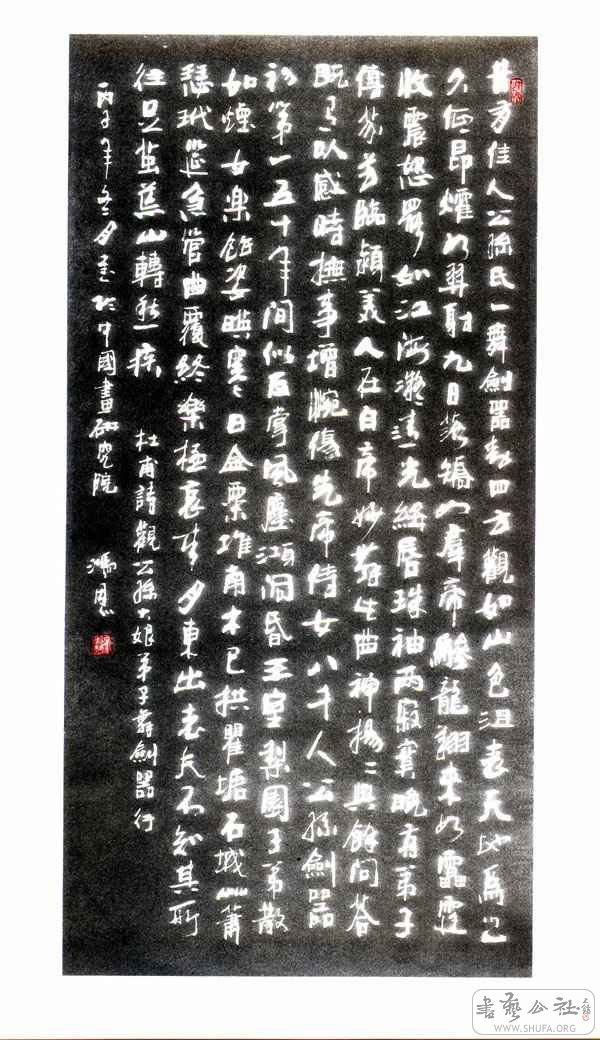 昔有佳人公孫氏一舞劍器動四方觀如山色沮喪天地為之
久低昂燿如羿射九日落矯如羣帝驂龍翔來如雷霆
收震怒罷如江海凝清光絳唇珠袖兩寂寞晚有弟子
傳芬芳臨潁美人在白帝妙舞此曲神揚〻與餘問答
既有以感時撫事增惋傷先帝侍女八千人公孫劍器
初第一五十年間似反掌風塵澒洞昏王室梨園子弟散
如煙女樂餘姿映寒日金粟堆南木已拱瞿塘石城艸蕭
瑟玳筵急管曲覆終樂極哀來月東出老夫不知其所
往足繭荒山轉愁疾 杜甫詩觀公孫大娘弟子舞劍器行
丙子年冬月書於中國畫研究院
書藝公社
WWW.SHUFA.ORG